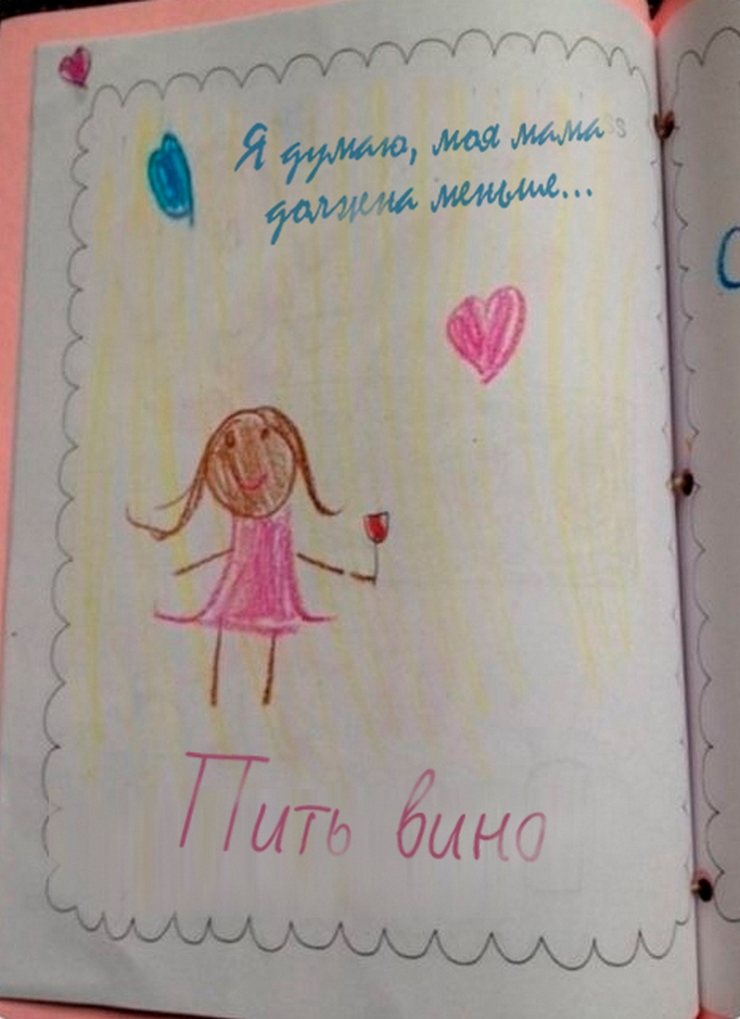 Я думаю, моя мама
должна меньше...
Пить вино